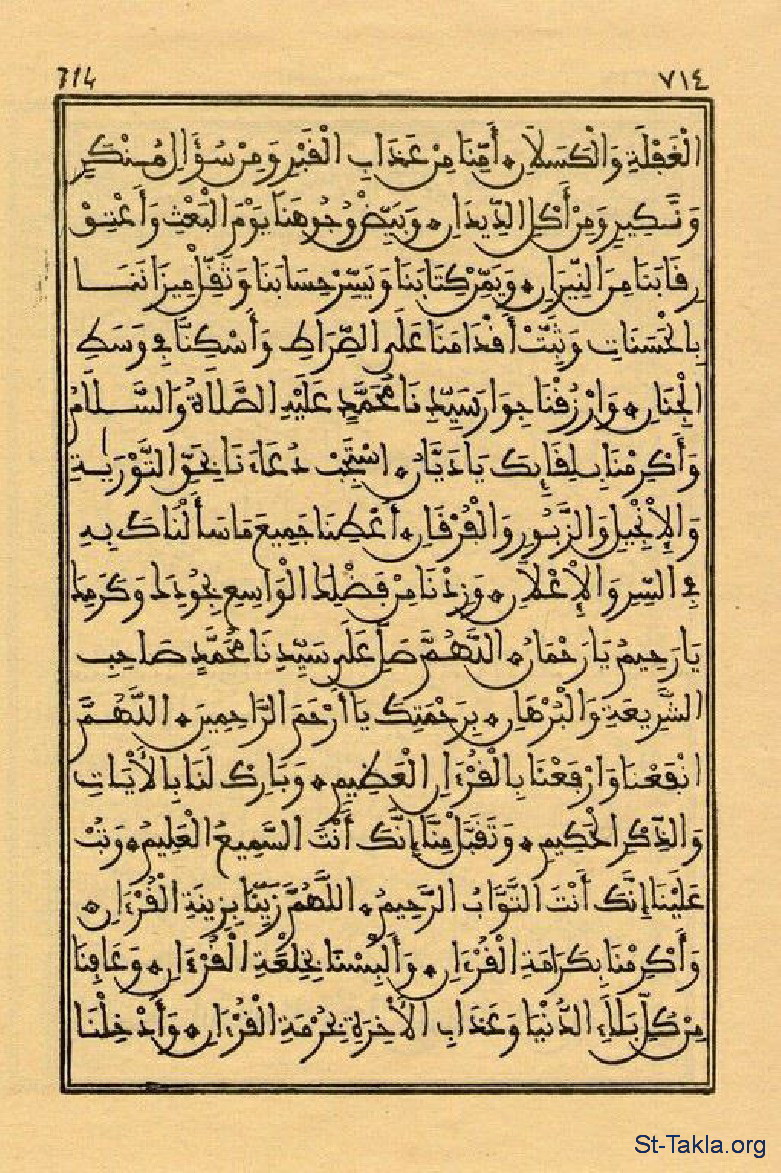 714 ٧١٤
الْغَفْلَةِ وَالْكَسَلَانِ • أَمِّنَّا مِنْ عَذَابِ الْقَبْرِ وَمِنْ سُؤَالِ مُنْكَرٍ
وَنَكِيرٍ وَمِنْ أَكْلِ الدِّيدَانِ • وَبَيِّضْ وُجُوهَنَا يَوْمَ الْبَعْثِ وَأَعْتِقْ
رِقَابَنَا مِنَ النِّيرَانِ • وَيَمِّنْ كِتَابَنَا وَيَسِّرْ حِسَابَنَا وَثَقِّلْ مِيزَانَنَا
بِالْحَسَنَاتِ وَثَبِّتْ أَقْدَامَنَا عَلَى الصِّرَاطِ وَأَسْكِنَّا فِي وَسَطِ
الْجِنَانِ • وَارْزُقْنَا جِوَارَ سَيِّدِنَا مُحَمَّدٍ عَلَيْهِ الصَّلَاةُ وَالسَّلَامُ
وَأَكْرِمْنَا بِلِقَائِكَ يَا دَيَّانُ • اسْتَجِبْ دُعَاءَنَا بِحَقِّ التَّوْرَيةِ
وَالْإِنْجِيلِ وَالزَّبُورِ وَالْفُرْقَانِ • أَعْطِنَا جَمِيعَ مَا سَأَلْنَاكَ بِهِ
فِي السِّرِّ وَالْإِعْلَانِ • وَزِدْنَا مِنْ فَضْلِكَ الْوَاسِعِ بِجُودِكَ وَكَرَمِكَ
يَا رَحِيمُ يَا رَحْمَانُ • اللَّهُمَّ صَلِّ عَلَى سَيِّدِنَا مُحَمَّدٍ صَاحِبِ
الشَّرِيعَةِ وَالْبُرْهَانِ • بِرَحْمَتِكَ يَا أَرْحَمَ الرَّاحِمِينَ • اللَّهُمَّ
انْفَعْنَا وَارْفَعْنَا بِالْقُرْءَانِ الْعَظِيمِ • وَبَارِكْ لَنَا بِالْأَيَاتِ
وَالذِّكْرِ الْحَكِيمِ • وَتَقَبَّلْ مِنَّا إِنَّكَ أَنْتَ السَّمِيعُ الْعَلِيمُ • وَتُبْ
عَلَيْنَا إِنَّكَ أَنْتَ التَّوَّابُ الرَّحِيمُ • اللَّهُمَّ زَيِّنَّا بِزِينَةِ الْقُرْءَانِ •
وَأَكْرِمْنَا بِكَرَامَةِ الْقُرْءَانِ • وَأَلْبِسْنَا بِخِلْعَةِ الْقُرْءَانِ • وَعَافِنَا
مِنْ كُلِّ بَلَاءِ الدُّنْيَا وَعَذَابِ الْأَخِرَةِ بِحُرْمَةِ الْقُرْءَانِ • وَأَدْخِلْنَا
St-Takla.org